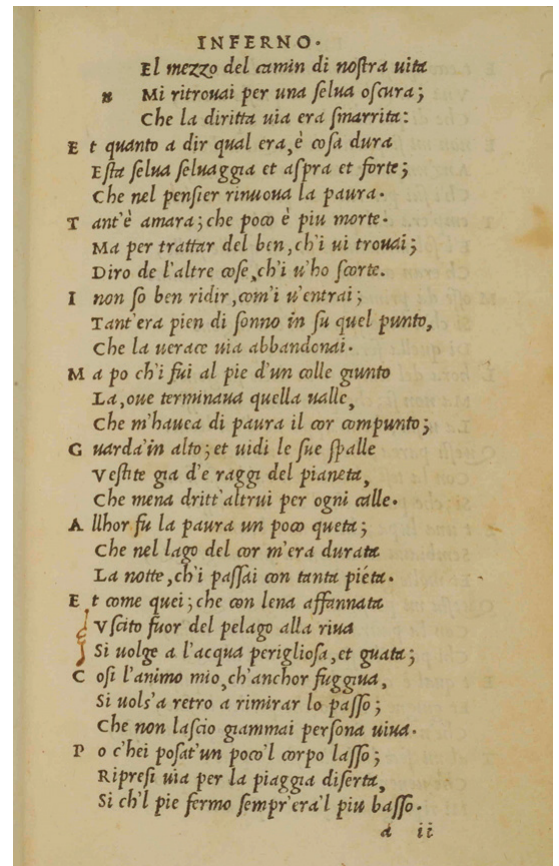 INFERNO.
El mezzo del camin di noſtra uita
n Mi ritrouai per una ſelua oſcura;
Che la diritta uia era ſmarrita:
E t quanto a dir qual era, è coſa dura
Eſta ſelua ſeluaggia et aſpra et forte;
Che nel penſier rinuoua la paura.
T ant'è amara; che poco è piu morte.
Ma per trattar del ben, ch'i ui trouai;
Diro de l'altre coſe, ch'i u'ho ſcorte.
I non ſo ben ridir, com'i u'entrai;
Tant'era pien di ſonno in ſu quel punto,
Che la uerace uia abbandonai.
M a po ch'i fui al pie d'un colle giunto
La, oue terminaua quella ualle,
Che m'hauea di paura il cor compunto;
G uarda'in alto; et uidi le ſue ſpalle
Veſtite gia d'e raggi del pianeta,
Che mena dritt'altrui per ogni calle.
A llhor fu la paura un poco queta;
Che nel lago del cor m'era durata
La notte, ch'i paſſai con tanta piéta.
E t come quei; che con lena affannata
Vſcito fuor del pelago alla riua
Si uolge a l'acqua periglioſa, et guata;
C oſi l'animo mio, ch'anchor fuggiua,
Si uolſ'a retro a rimirar lo paſſo;
Che non laſcio giammai perſona uiua.
P o c'hei poſat'un poco'l corpo laſſo;
Ripreſi uia per la piaggia diſerta,
Si ch'l pie fermo ſempr'era'l piu baſſo.
a ii